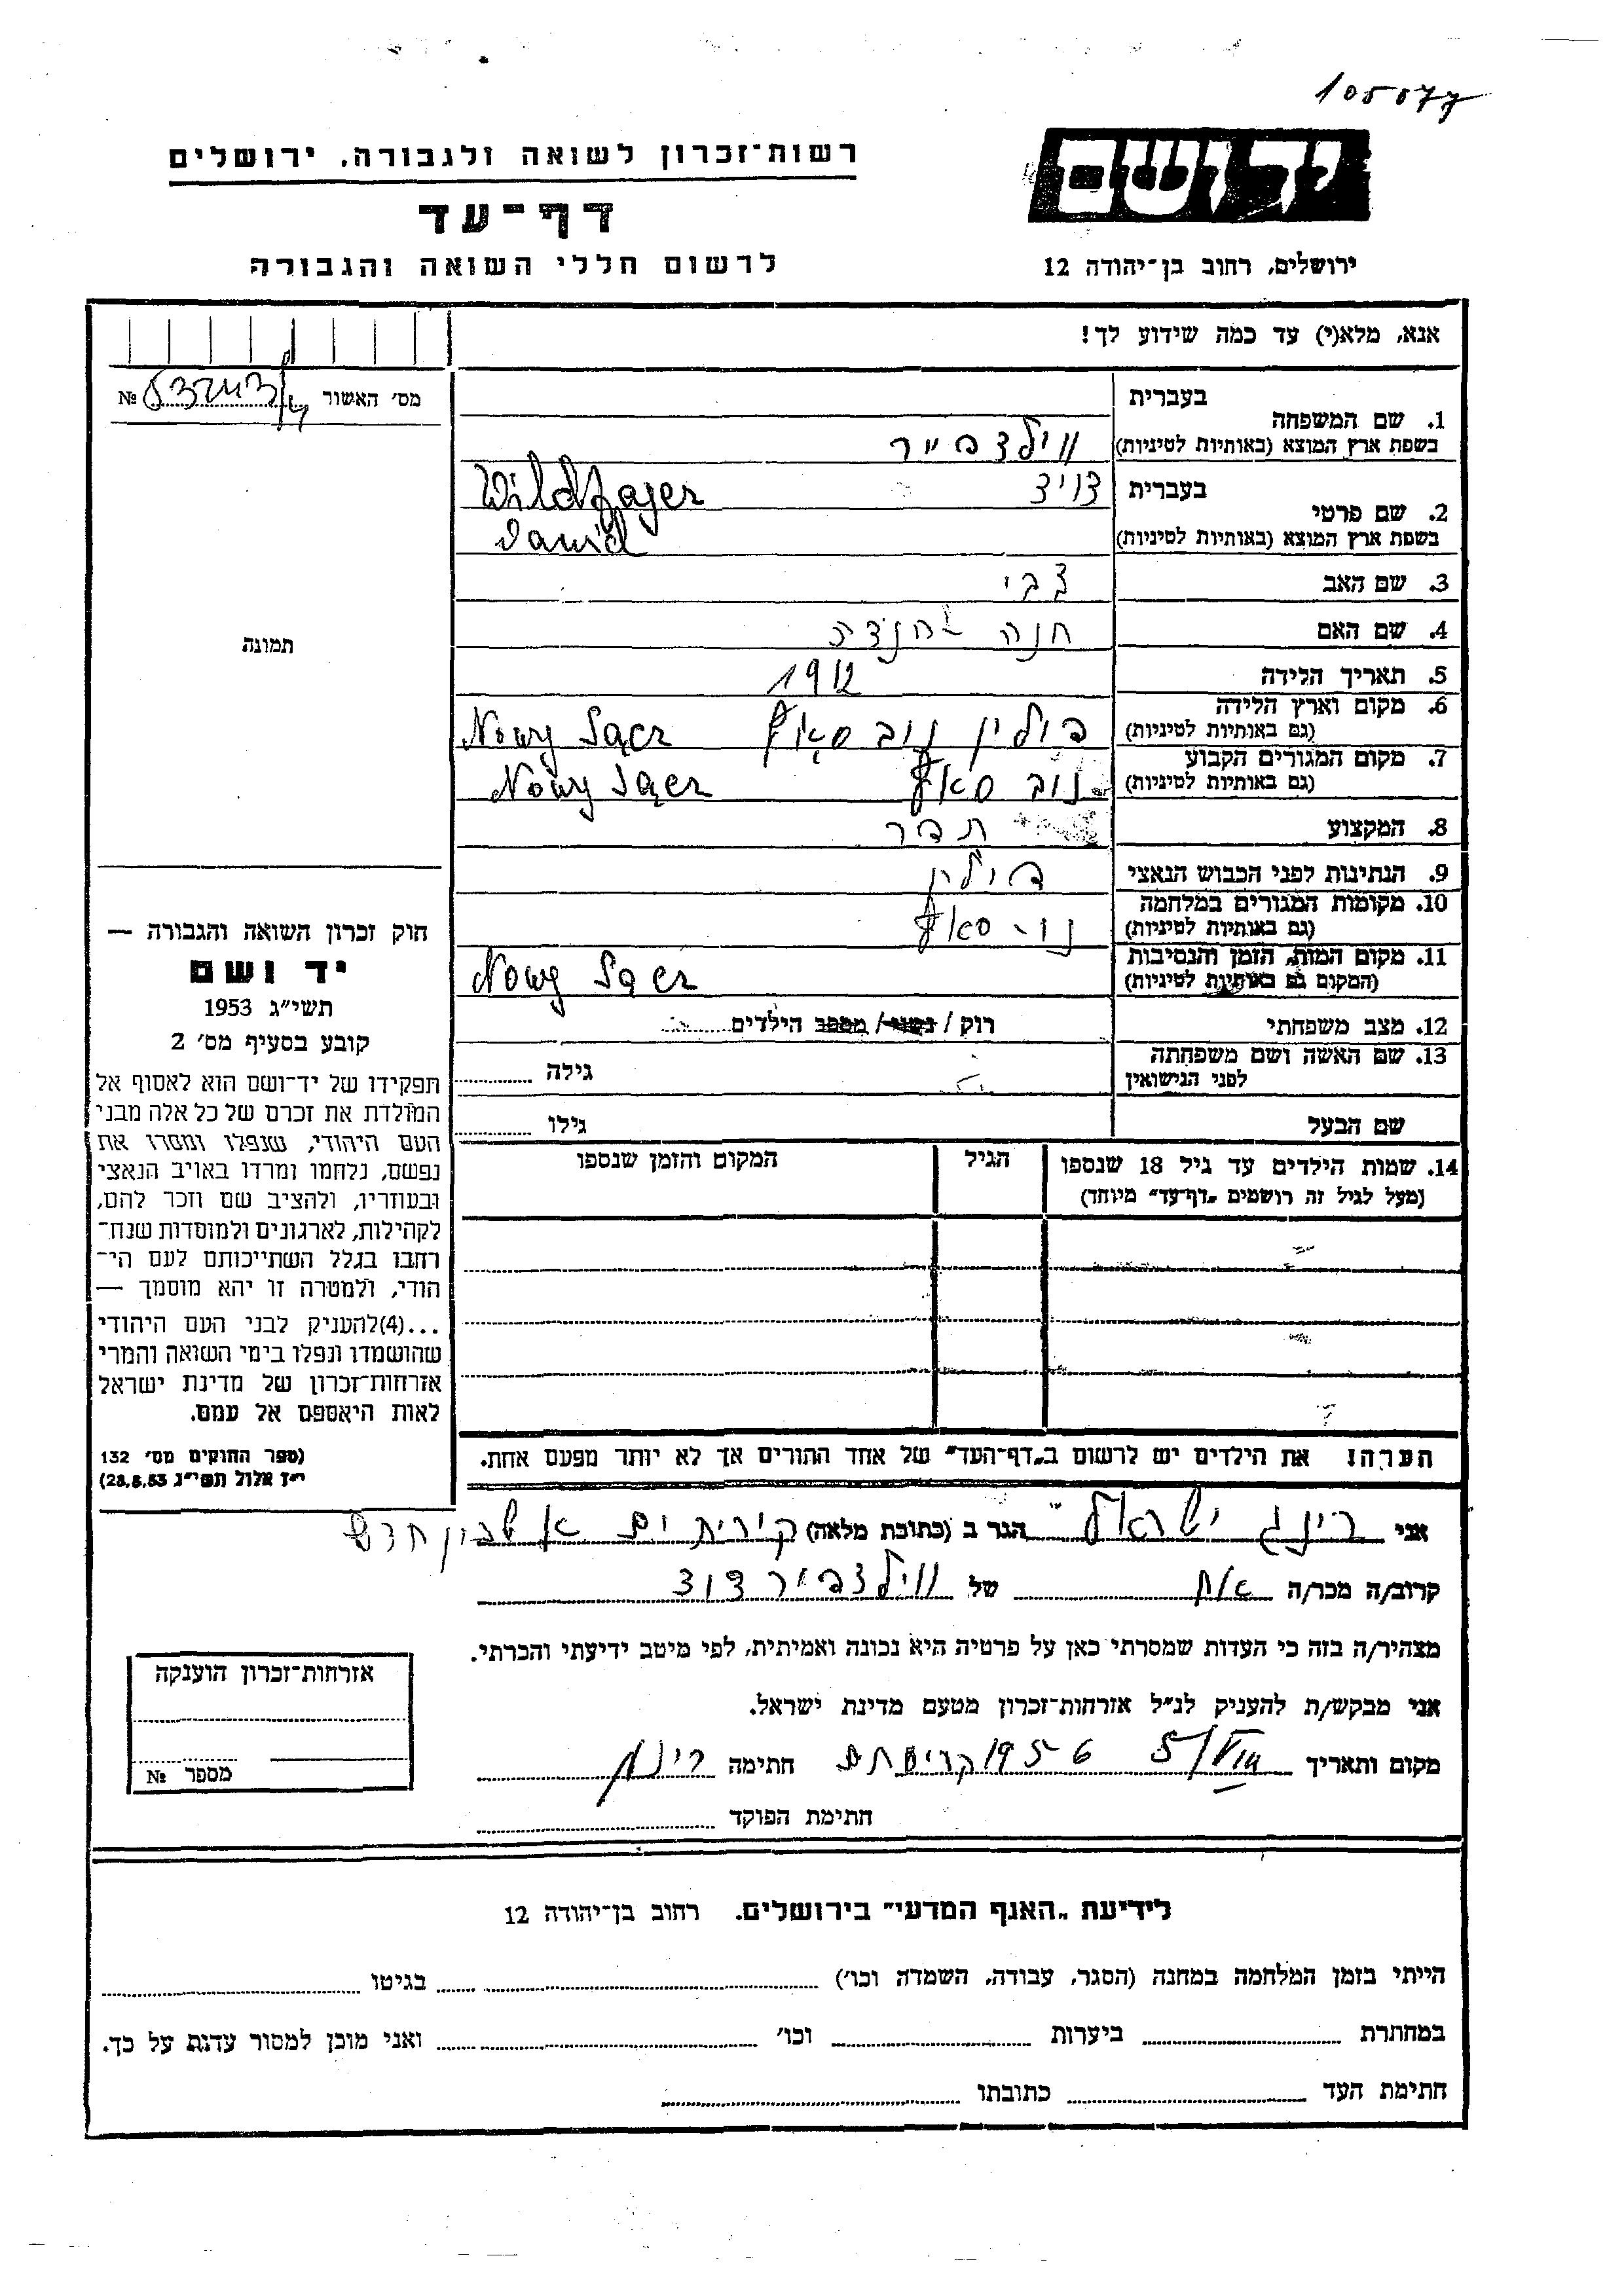 105077
רשות־זכרון לשואה ולגבורה, ירושלים
יד ושם
דף־עד
לרשום חללי השואה והגבורה
ירושלים, רחוב בן־יהודה 12
אנא, מלא(י) עד כמה שידוע לך!
מס׳ האשור №
1. שם המשפחה
בעברית
בשפת ארץ המוצא (באותיות לטיניות)
ווילדפייר
2. שם פרטי
בעברית דויד Wildfajer
בשפת ארץ המוצא (באותיות לטיניות) Dawid
3. שם האב צבי
4. שם האם חנה
5. תאריך הלידה 1912
6. מקום וארץ הלידה
(גם באותיות לטיניות) פולין נוב סאנץ Nowy Sącz
7. מקום המגורים הקבוע
(גם באותיות לטיניות) נוב סאנץ Nowy Sącz
8. המקצוע
9. הנתינות לפני הכבוש הנאצי פולין
10. מקומות המגורים במלחמה
(גם באותיות לטיניות)
11. מקום המות, הזמן והנסיבות
(המקום גם באותיות לטיניות) Nowy Sącz
12. מצב משפחתי רוק / נשוי / מספר הילדים
13. שם האשה ושם משפחתה
לפני הנישואין גילה
שם הבעל גילו
14. שמות הילדים עד גיל 18 שנספו
(מעל לגיל זה רושמים „דף־עד״ מיוחד)
הגיל
המקום והזמן שנספו
הערה! את הילדים יש לרשום ב„דף־העד״ של אחד ההורים אך לא יותר מפעם אחת.
תמונה
חוק זכרון השואה והגבורה —
יד ושם
תשי״ג 1953
קובע בסעיף מס׳ 2
תפקידו של יד־ושם הוא לאסוף אל
המולדת את זכרם של כל אלה מבני
העם היהודי, שנפלו ומסרו את
נפשם, נלחמו ומרדו באויב הנאצי
ובעוזריו, ולהציב שם וזכר להם,
לקהילות, לארגונים ולמוסדות שנח־
רחבו בגלל השתייכותם לעם הי־
הודי, ולמטרה זו יהא מוסמך —
...(4)להעניק לבני העם היהודי
שהושמדו ונפלו בימי השואה והמרי
אזרחות־זכרון של מדינת ישראל
לאות היאספם אל עמם.
(ספר החוקים מס׳ 132
י״ז אלול תשי״ג 28.8.53)
אני רינג ישראל הגר ב (כתובת מלאה) קירית ים
קרוב/ה מכר/ה אח של ווילדפייר דוד
מצהיר/ה בזה כי העדות שמסרתי כאן על פרטיה היא נכונה ואמיתית, לפי מיטב ידיעתי והכרתי.
אני מבקש/ת להעניק לנ״ל אזרחות־זכרון מטעם מדינת ישראל.
מקום ותאריך 5/VIII 1956 חתימה רינג
חתימת הפוקד
אזרחות־זכרון הוענקה
מספר №
לידיעת „האגף המדעי״ בירושלים. רחוב בן־יהודה 12
הייתי בזמן המלחמה במחנה (הסגר, עבודה, השמדה וכו׳) בגיטו
במחתרת ביערות וכו׳ ואני מוכן למסור עדות על כך.
חתימת העד כתובתו